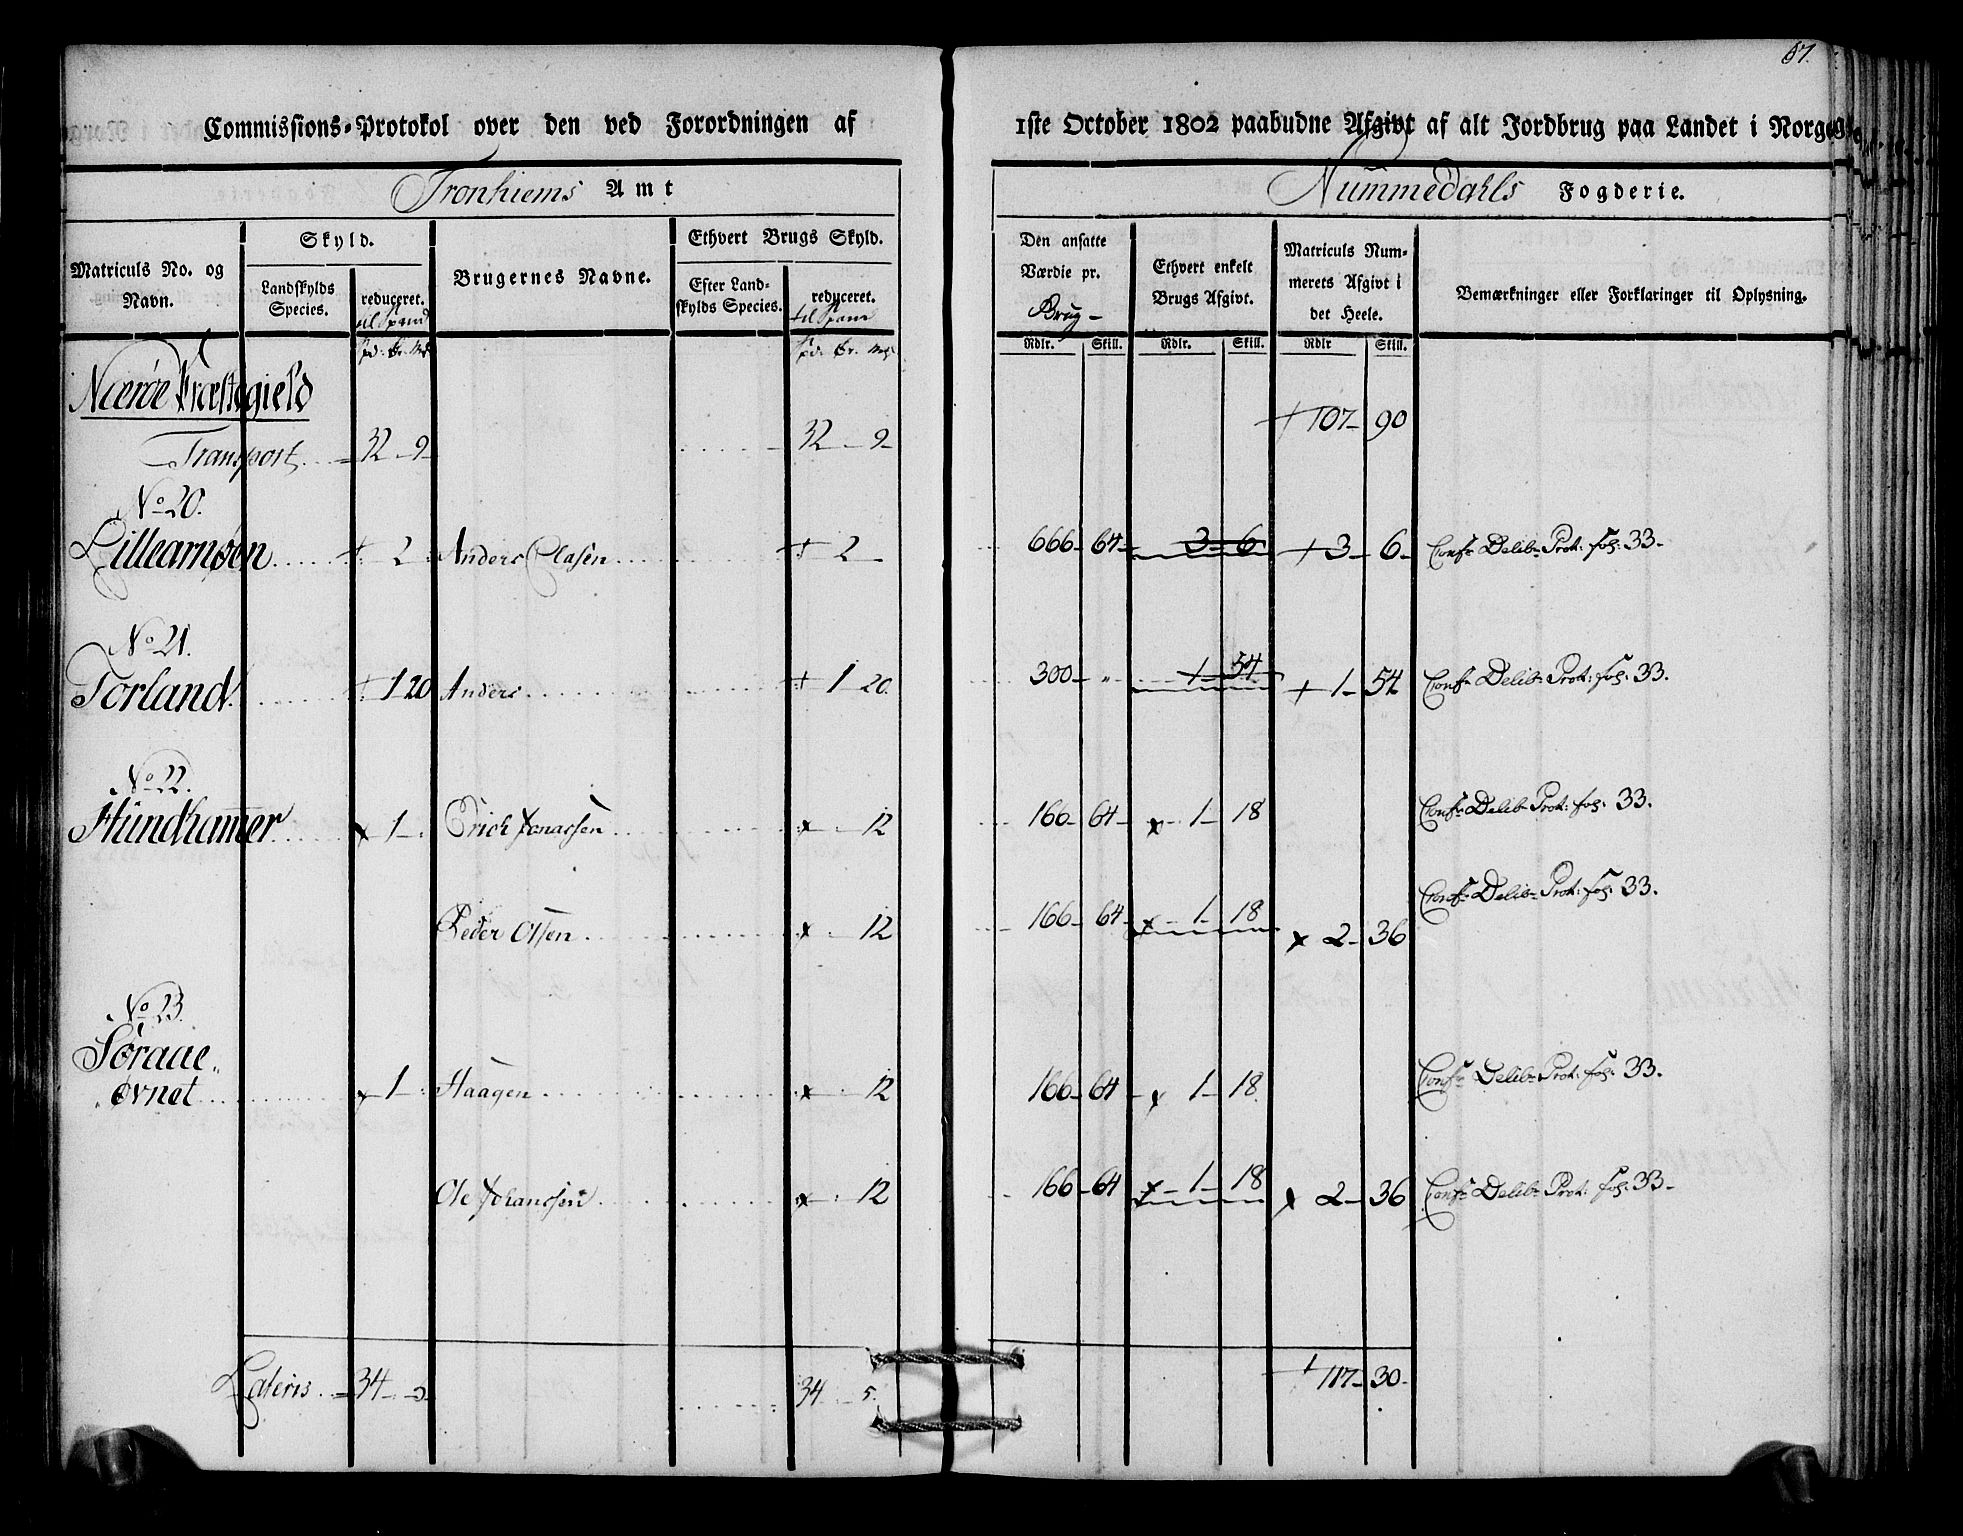 67.
Commissions-Protokol over den ved Forordningen af 1ste October 1802 paabudne Afgivt af alt Jordbrug paa Landet i Norge
Tronhiems Amt
Nummedahls Fogderie.
Matriculs No. og Navn.
Skyld.
Landskylds Species.
reduceret. til Spand
Brugernes Navne.
Ethvert Brugs Skyld.
Efter Landskylds Species.
reduceret. til Spand
Den ansatte Værdie pr. Brug-
Ethvert enkelt Brugs Afgivt.
Matriculs Nummerets Afgivt i det Heele.
Bemærkninger eller Forklaringer til Oplysning.
Rdlr. Skill. Rdlr. Skill. Rdlr Skill.
Nærøe Præstegield
Transport 32 - 9 32 - 9 - 107 - 90
No 20.
Lillearnøen 2 Anders Clasen 2 - 666 - 64 - 3 - 6 3 - 6 - Conf. Delib. Prot: fol: 33.
No 21.
Torland 1 20 Anders 1 20. 300 - " 1 - 54 1 - 54 Conf. Delib. Prot: fol: 33.
No 22.
Hundhamer 1 - Erich Jonassen 12 166 - 64 - 1 - 18 Conf. Delib. Prot: fol: 33.
Peder Olsen 12 166 - 64 - 1 - 18 2 - 36 Conf. Delib. Prot: fol: 33.
No 23.
Søraae
ørnet 1 - Haagen 12 166 - 64 - 1 - 18. Conf. Delib. Prot: fol: 33.
Ole Johanssen 12 166 - 64 1 - 18 2 - 36 Conf. Delib. Prot: fol: 33 -
Lateris 34 34 5. 117 - 30 -